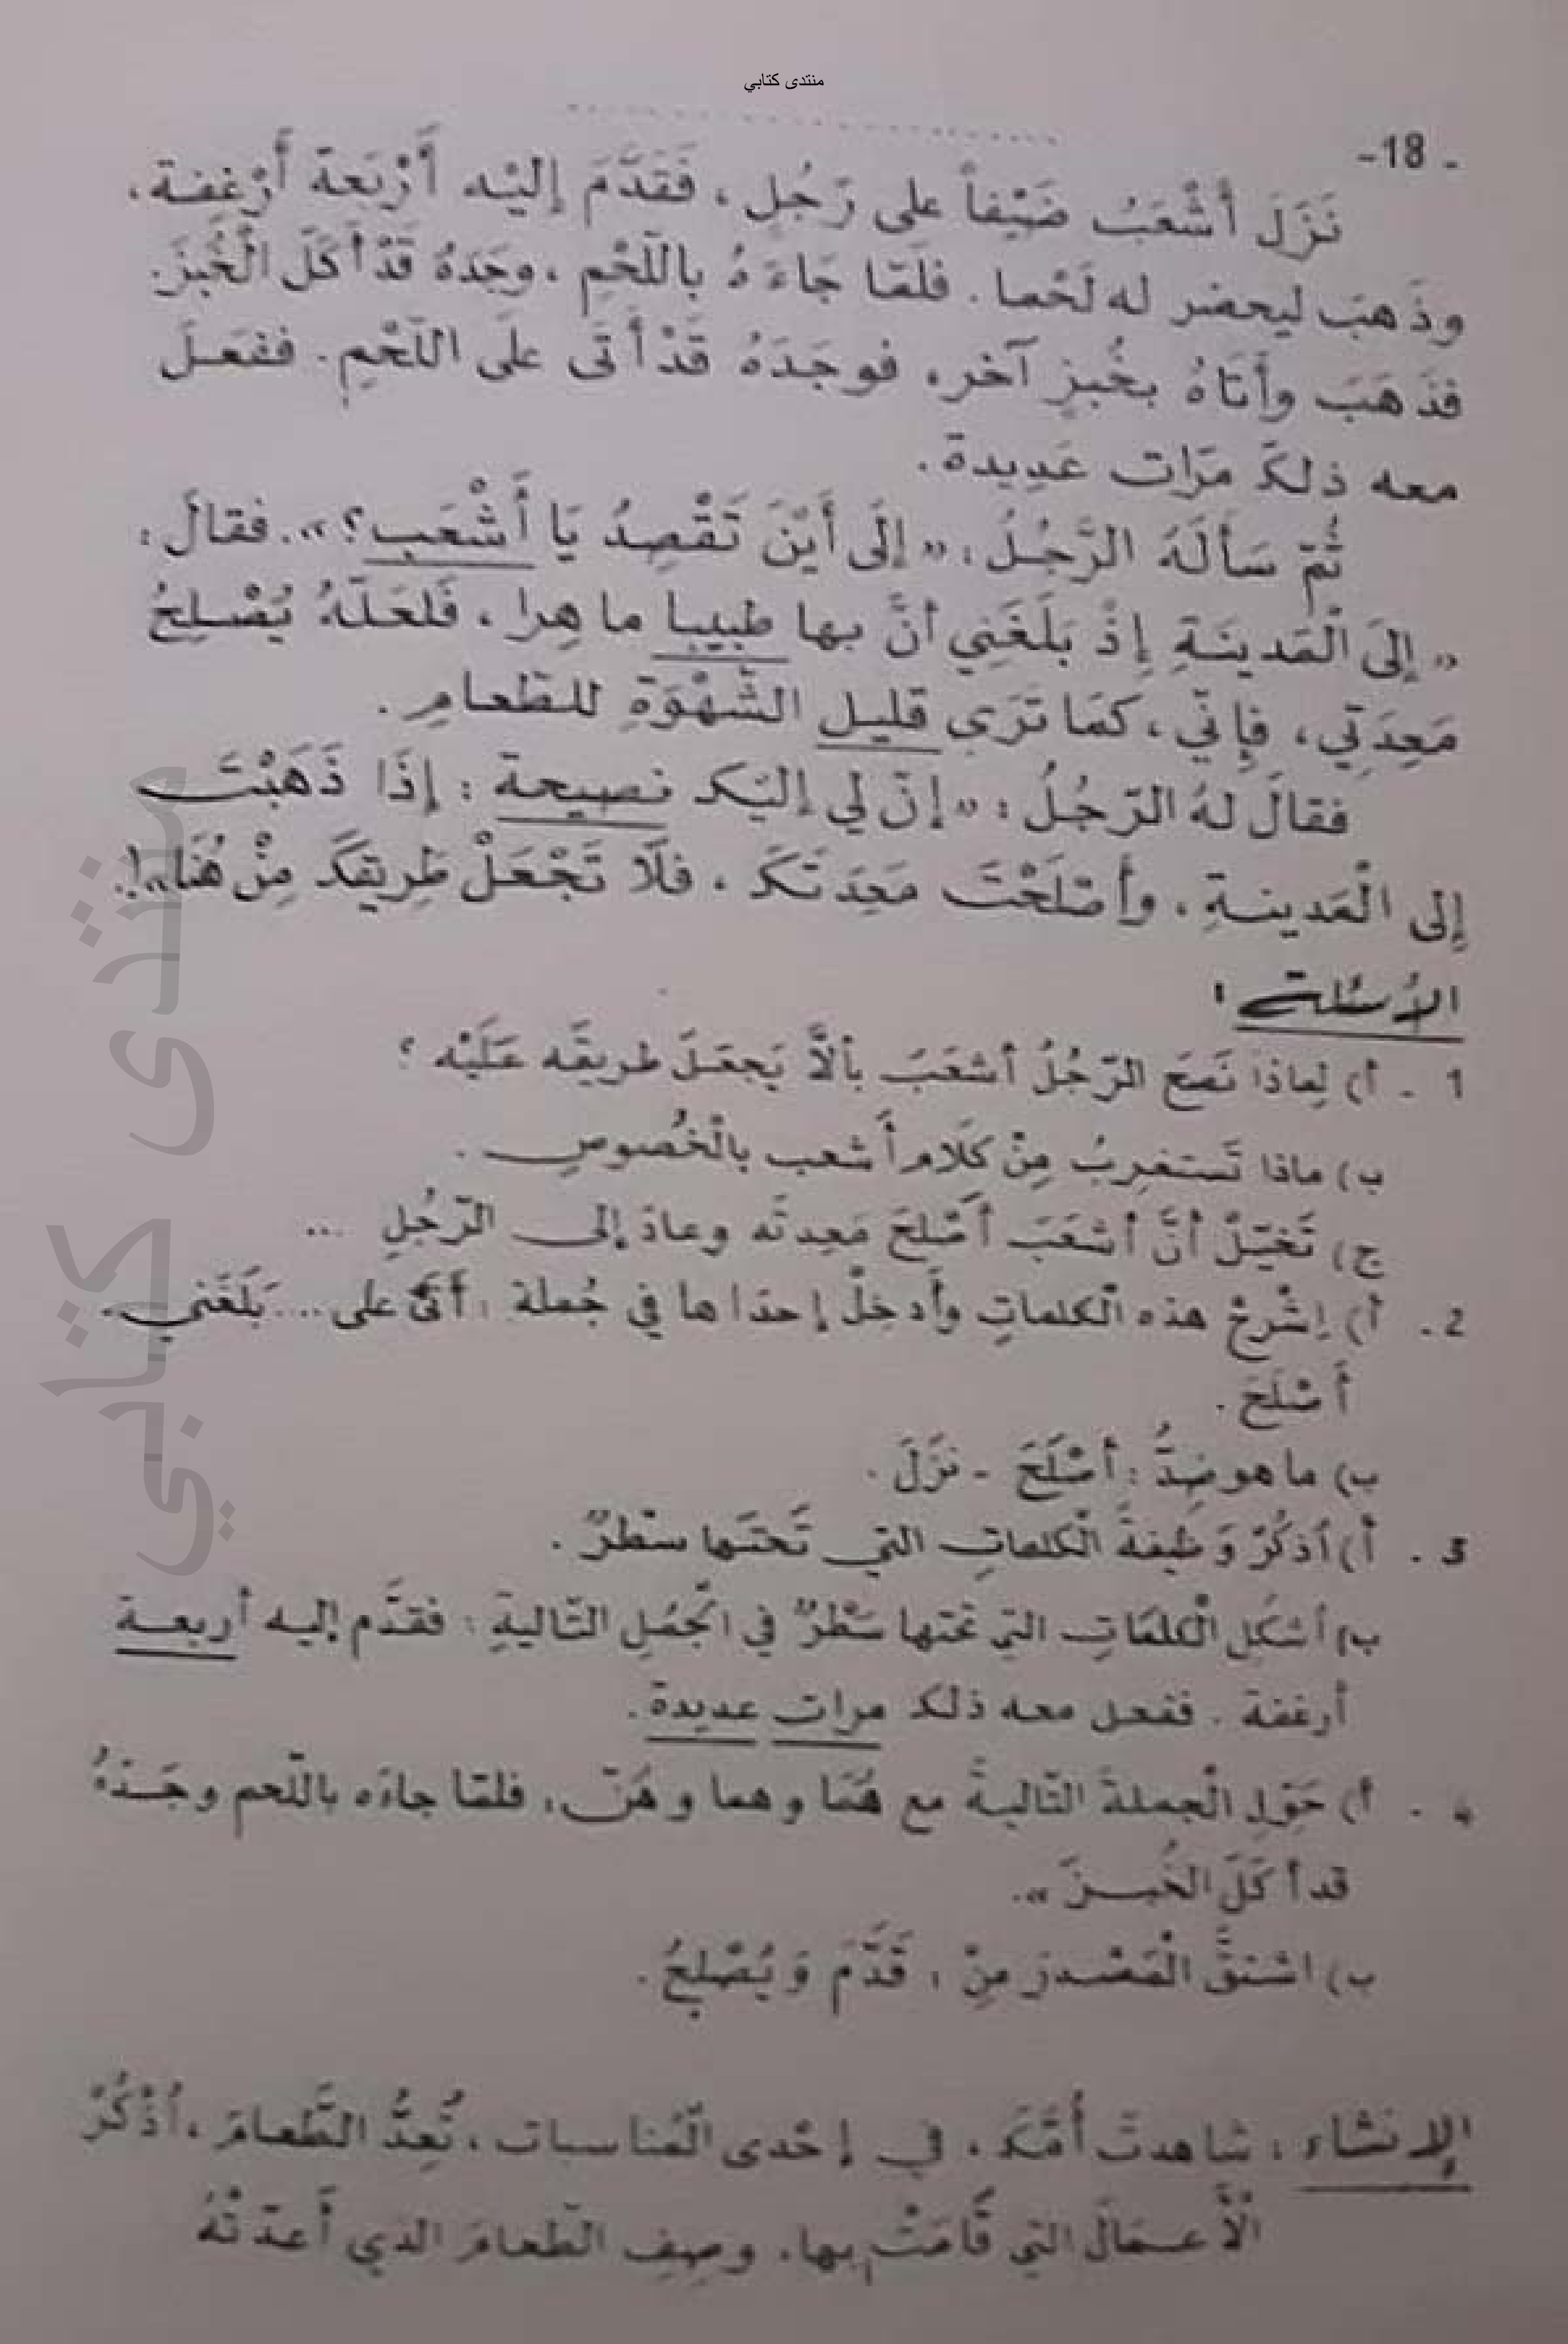 منتدى كتابي
- 18-
نَزَلَ أَشْعَبُ ضَيْفاً على رَجُلٍ، فَقَدَّمَ إليْه أَرْبَعَةَ أَرْغفة،
وذَهبَ ليحضر له لَحْما. فلَمّا جَاءَهُ باللَّحْمِ، وجَدَهُ قَدْ أَكَلَ الْخُبْزَ.
فذَهَبَ وأَتَاهُ بخُبْزٍ آخر، فوجَدَهُ قَدْ أَتَى علَى اللَّحْمِ. ففعَلَ
معه ذلكَ مرّات عَدِيدة.
ثُمّ سَأَلَهُ الرَّجُلُ: «إلَى أَيْنَ تَقْصِدُ يَا أَشْعَب؟». فقالَ:
«إلىَ الْمَدينَةِ إذْ بَلَغَنِي أنَّ بها طبيبا ماهِرا، فَلعَلَّهُ يُصْلِحُ
مَعِدَتِي، فإِنّي، كمَا ترَى قليل الشَّهْوَةِ للطّعامِ.
فقالَ لهُ الرّجُلُ: «إنّ لي إليْكَ نصيحة: إذَا ذَهَبْتَ
إلى الْمَدينةِ، وأَصْلَحْتَ مَعِدَتَكَ، فلَا تَجْعَلْ طَرِيقكَ مِنْ هُنَا»!.
الأسئلة:
1 - أ) لِماذا نَصَحَ الرّجُلُ أشعَبَ بألاَّ يَجعَلَ طريقَه عَلَيْه؟
ب) ماذا تَستغرِبُ مِنْ كَلامِ أَشعب بالْخُصوصِ.
ج) تَخيّلْ أنَّ أشعَبَ أَصْلحَ مَعِدتَه وعادَ إلى الرّجُلِ ...
2 - أ) اِشْرحْ هذه الْكلماتِ وأَدخِلْ إحدَاها في جُملة: أَتَى على... بَلَغَني.
أَصْلَحَ.
ب) ما هو ضِدُّ: أصْلَحَ - نزَلَ.
3 - أ) اُذكُرْ وَظيفةَ الْكلماتِ التي تَحتَها سطْرٌ.
ب) أشكِل الْكلمَاتِ التي تحتها سَطْرٌ في الْجُمَلِ التّاليةِ: فقدّم إليه أربعة
أرغفة. ففعل معه ذلك مرات عديدة.
4 - أ) حَوّلِ الْجملةَ التّاليةَ مع هُمَا وهما وهُنّ، فلمّا جاءَه باللّحم وجَدَهُ
قد أكَلَ الخُبزَ».
ب) اشتقَّ الْمَصْدرَ مِنْ: قَدَّمَ وَيُصْلِحُ.
الإنشاء: شاهدتَ أُمَّكَ، في إحْدى الْمناسبات، تُعِدُّ الطَّعامَ، اُذْكُرْ
الْأَعمَالَ التي قَامَتْ بها. وصِفِ الطّعامَ الذي أَعدّتْهُ
منتدى كتابي